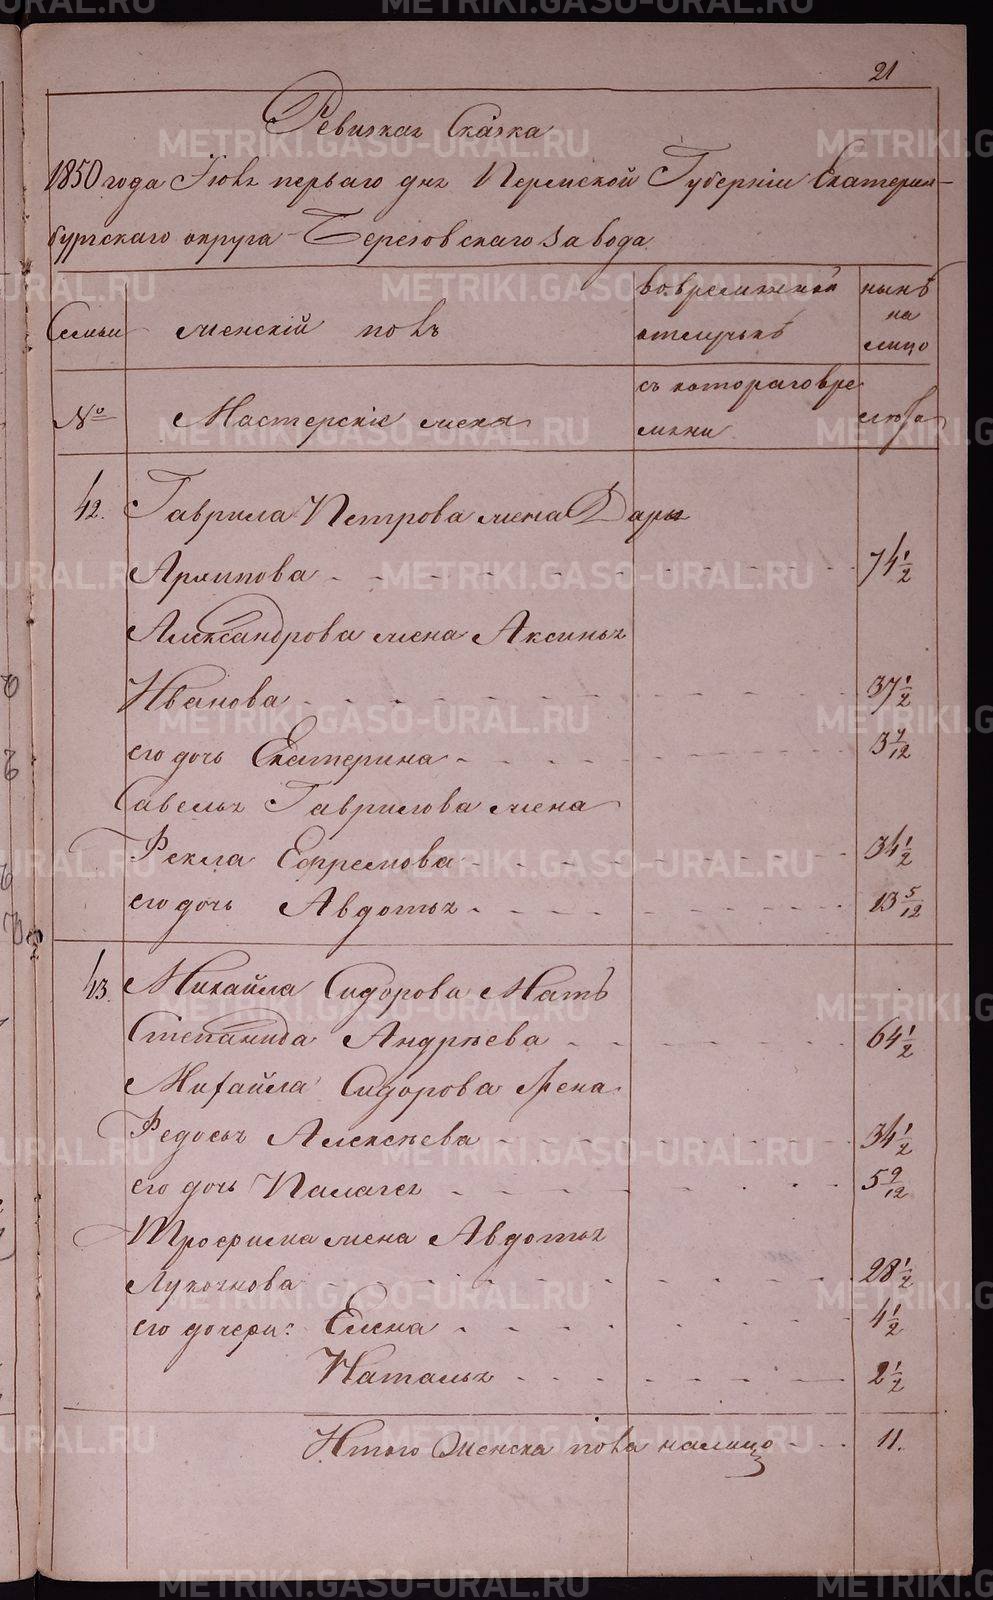 21
Ревизкая Сказка
1850 года Июля перваго дня Пермской Губерніи Екатерин-
бургскаго округа Березовскаго завода
Семьи женскій полъ во временной отлучкѣ нынѣ на лицо
№ Мастерскіе жена съ котораго времени лѣта
42. Гаврила Петрова жена Дарья
Архипова 74 1/2
Александрова жена Аксинья
Иванова 37 1/2
его дочь Екатерина 3 9/12
Савелья Гаврилова жена
Фекла Ефремова 34 1/2
его дочь Авдотья 13 5/12
43. Михайла Сидорова Мать
Степанида Андрѣева 64 1/2
Михайла Сидорова Жена
Федосья Алексѣева 34 1/2
его дочь Палагея 5 9/12
Трофима жена Авдотья
28 1/2
его дочери: Елена 4 1/2
Наталья 2 1/2
Итого Женска пола налицо 11.
METRIKI.GASO-URAL.RU